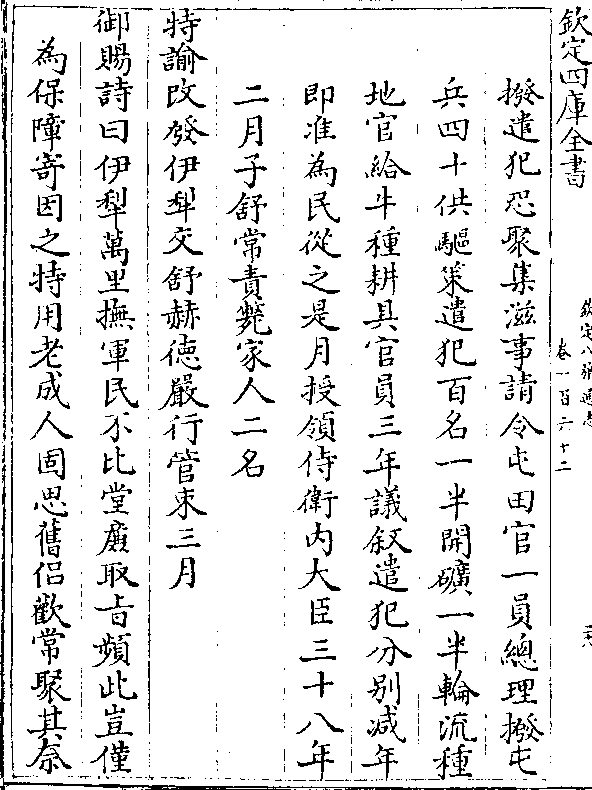 欽定四庫全書
欽定八旗通志
卷一百六十二
撥遣犯恐聚集滋事請令屯田官一員總理撥屯
兵四十供驅策遣犯百名一半開礦一半輪流種
地官給牛種耕具官員三年議敘遣犯分別減年
即准為民從之是月授領侍衛內大臣三十八年
二月子舒常責斃家人二名
特諭改發伊犁交舒赫德嚴行管束三月
御賜詩曰伊犁萬里撫軍民不比堂廉取旨頻此豈僅
為保障寄因之特用老成人固思舊侶歡常聚其奈